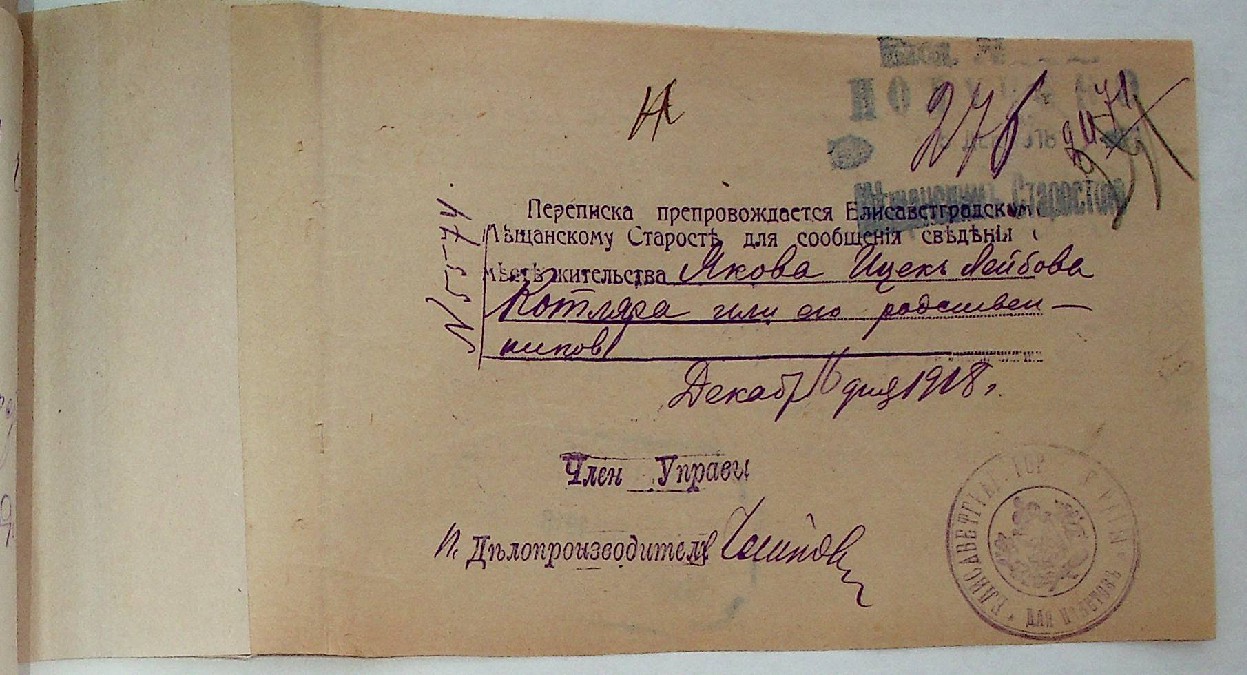 Вход. №
276
Мѣщанскимъ Старостой
Переписка препровождается Елисаветградском
Мѣщанскому Старостѣ для сообщенія свѣдѣнія
мѣстѣ жительства Якова Ицекъ Лейбова
Котляра или его родствен-
ников
№ 5574
Декабр 16 дня 1918 г.
Член Управы
И. Дѣлопроизводителя
ЕЛИСАВЕТГРАД. ГОР. УПРАВЫ
ДЛЯ ПАКЕТОВЪ